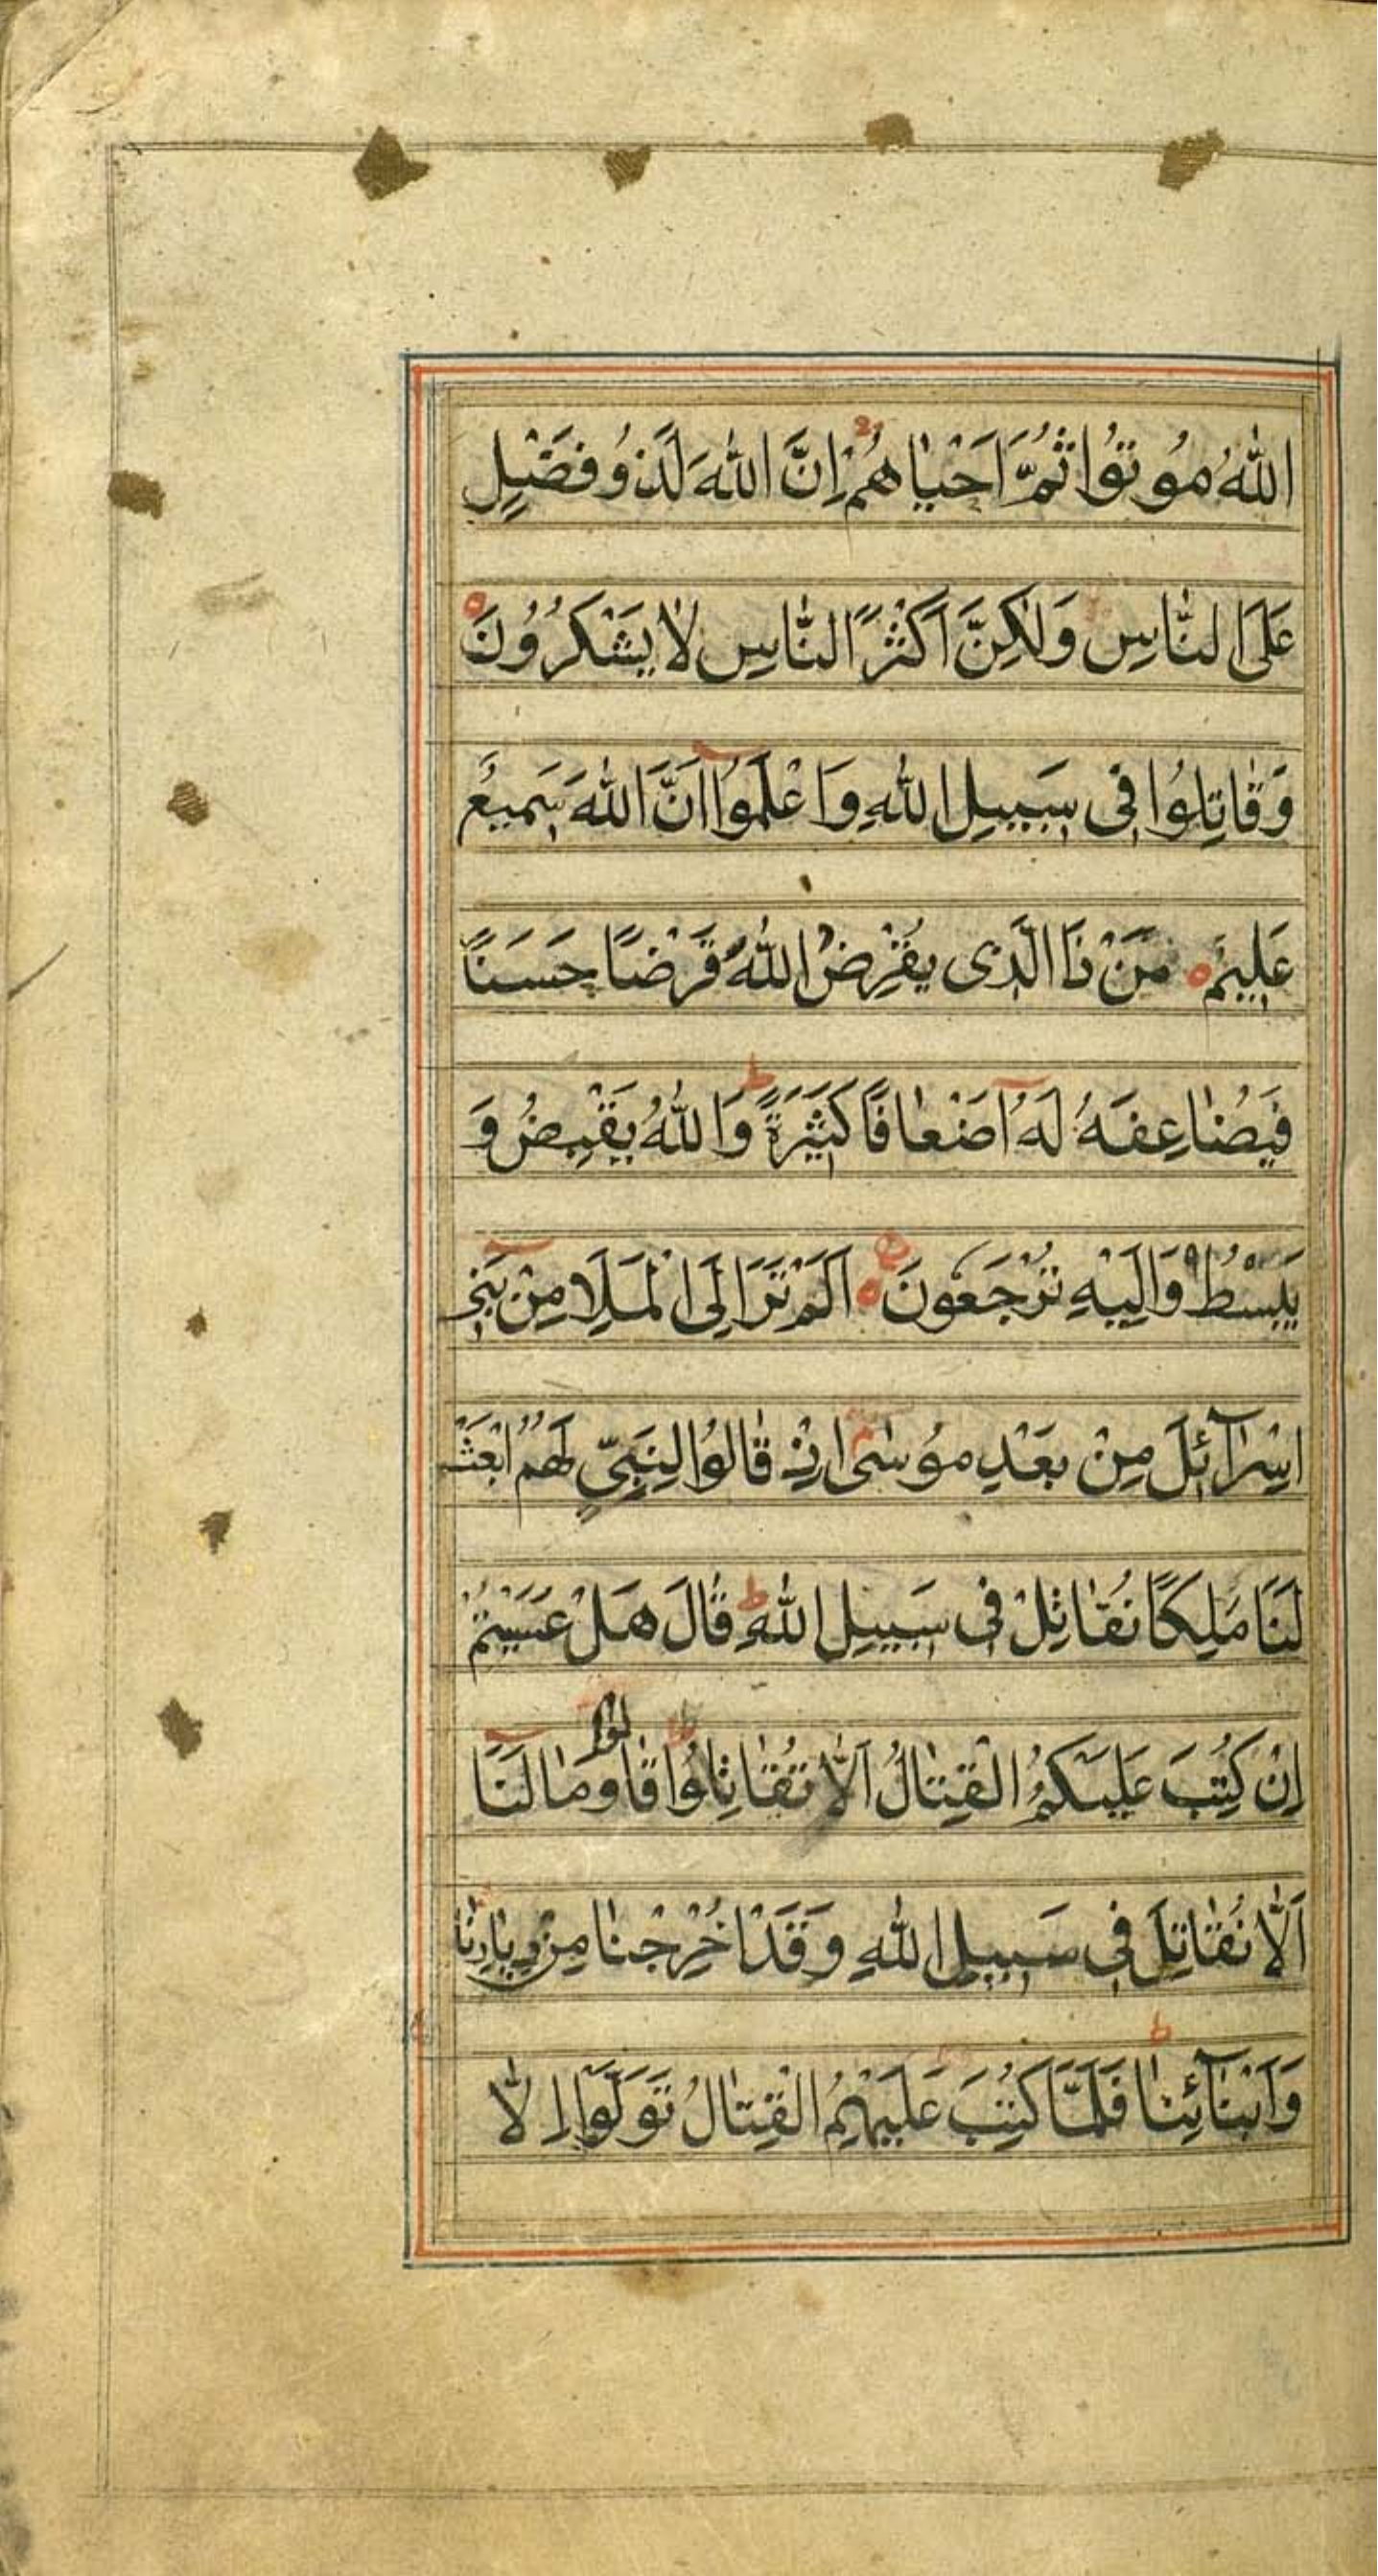 اللّٰهُ مُوْتُوْا ثُمَّ اَحْيٰاهُمْ اِنَّ اللّٰهَ لَذُوْ فَضْلٍ
عَلَى النّٰاسِ وَلٰكِنَّ اَكْثَرَ النّٰاسِ لٰا يَشْكُرُوْنَ ه
وَقٰاتِلُوْا فِى سَبِيلِ اللّٰهِ وَاعْلَمُوْٓا اَنَّ اللّٰهَ سَمِيعٌ
عَلِيمٌ ه مَنْ ذَا الَّذِى يُقْرِضُ اللّٰهَ قَرْضًا حَسَنًا
فَيُضٰاعِفَهُ لَهُٓ اَضْعٰافًا كَثِيْرَةً ط وَاللّٰهُ يَقْبِضُ وَ
يَبْسُطُ وَاِلَيْهِ تُرْجَعُونَ ه ع اَلَمْ تَرَ اِلَى الْمَلَاِ مِنْ بَنِٓى
اِسْرٰٓائِلَ مِنْ بَعْدِ مُوْسٰى م اِذْ قٰالُوْا لِنَبِىٍّ لَهُمُ ابْعَثْ
لَنَا مَلِكًا نُقٰاتِلْ فِى سَبِيلِ اللّٰهِ ط قٰالَ هَلْ عَسَيْتُمْ
اِنْ كُتِبَ عَلَيْكُمُ الْقِتٰالُ اَلّٰا تُقٰاتِلُوْا ط قٰالوا وَمٰا لَنَٓا
اَلّٰا نُقٰاتِلَ فِى سَبِيلِ اللّٰهِ وَقَدْ اُخْرِجْنٰا مِنْ دِيٰارِنٰا
وَاَبْنٰٓائِنٰا ط فَلَمَّا كُتِبَ عَلَيْهِمُ الْقِتٰالُ تَوَلَّوْا اِلّٰا